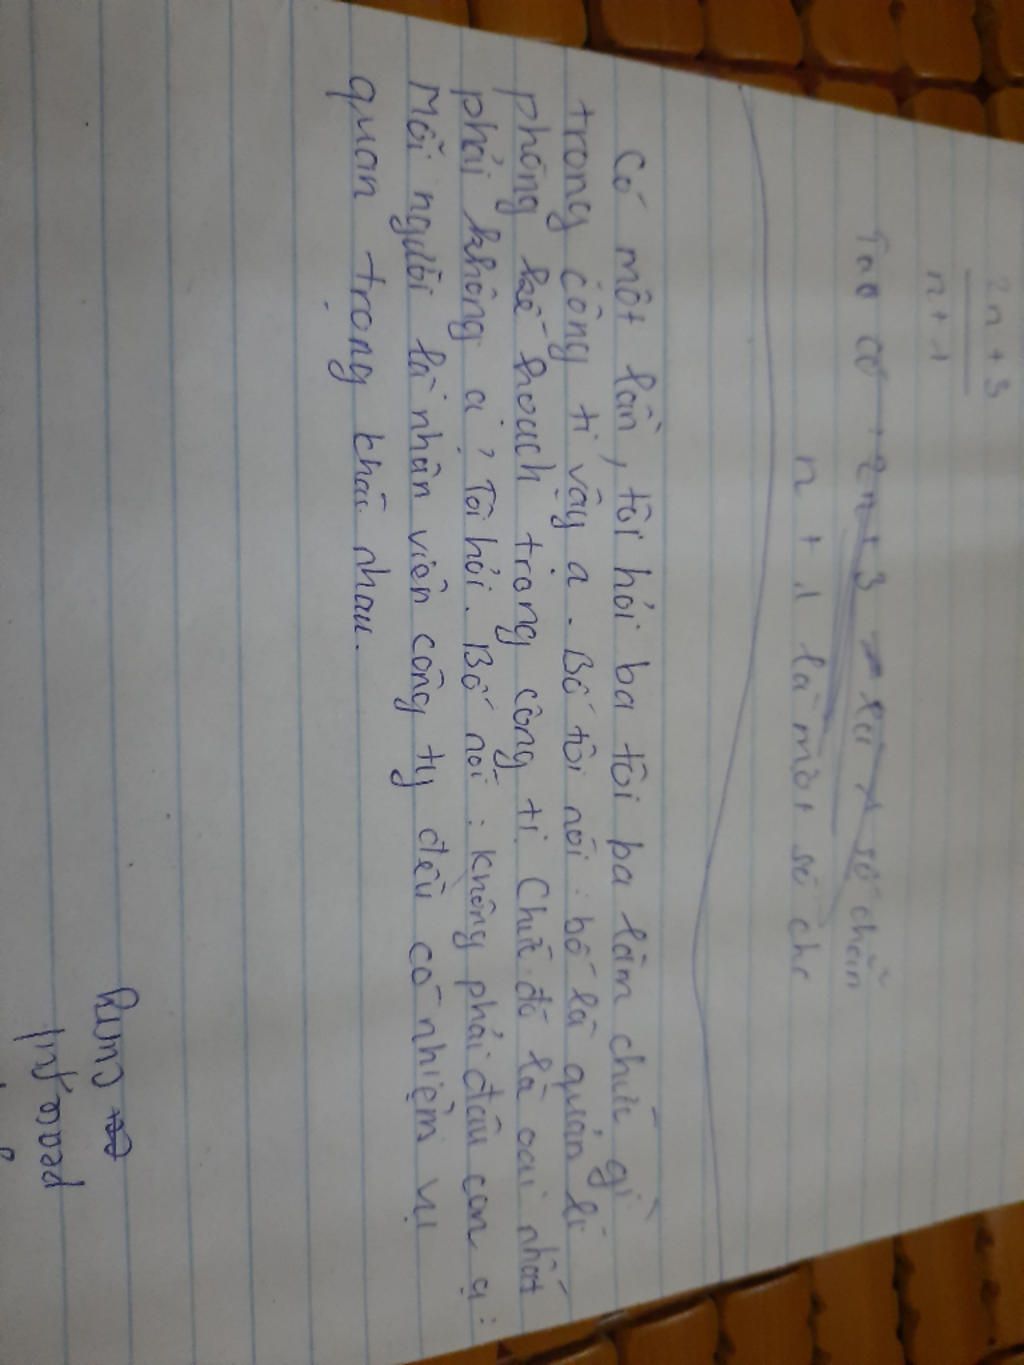 2n + 3
n + 1
Ta có 2n + 3 là số chẵn
n + 1 là một số
Có một lần, tôi hỏi ba tôi ba làm chức gì
trong công ti vậy a. Bố tôi nói: bố là quản lí
phòng kế hoach trong công ti. Chức đó là oai nhất
phải không ạ? Tôi hỏi. Bố nói: Không phải đâu con ạ:
Mỗi người là nhân viên công ty đều có nhiệm vụ
quan trọng khác nhau.